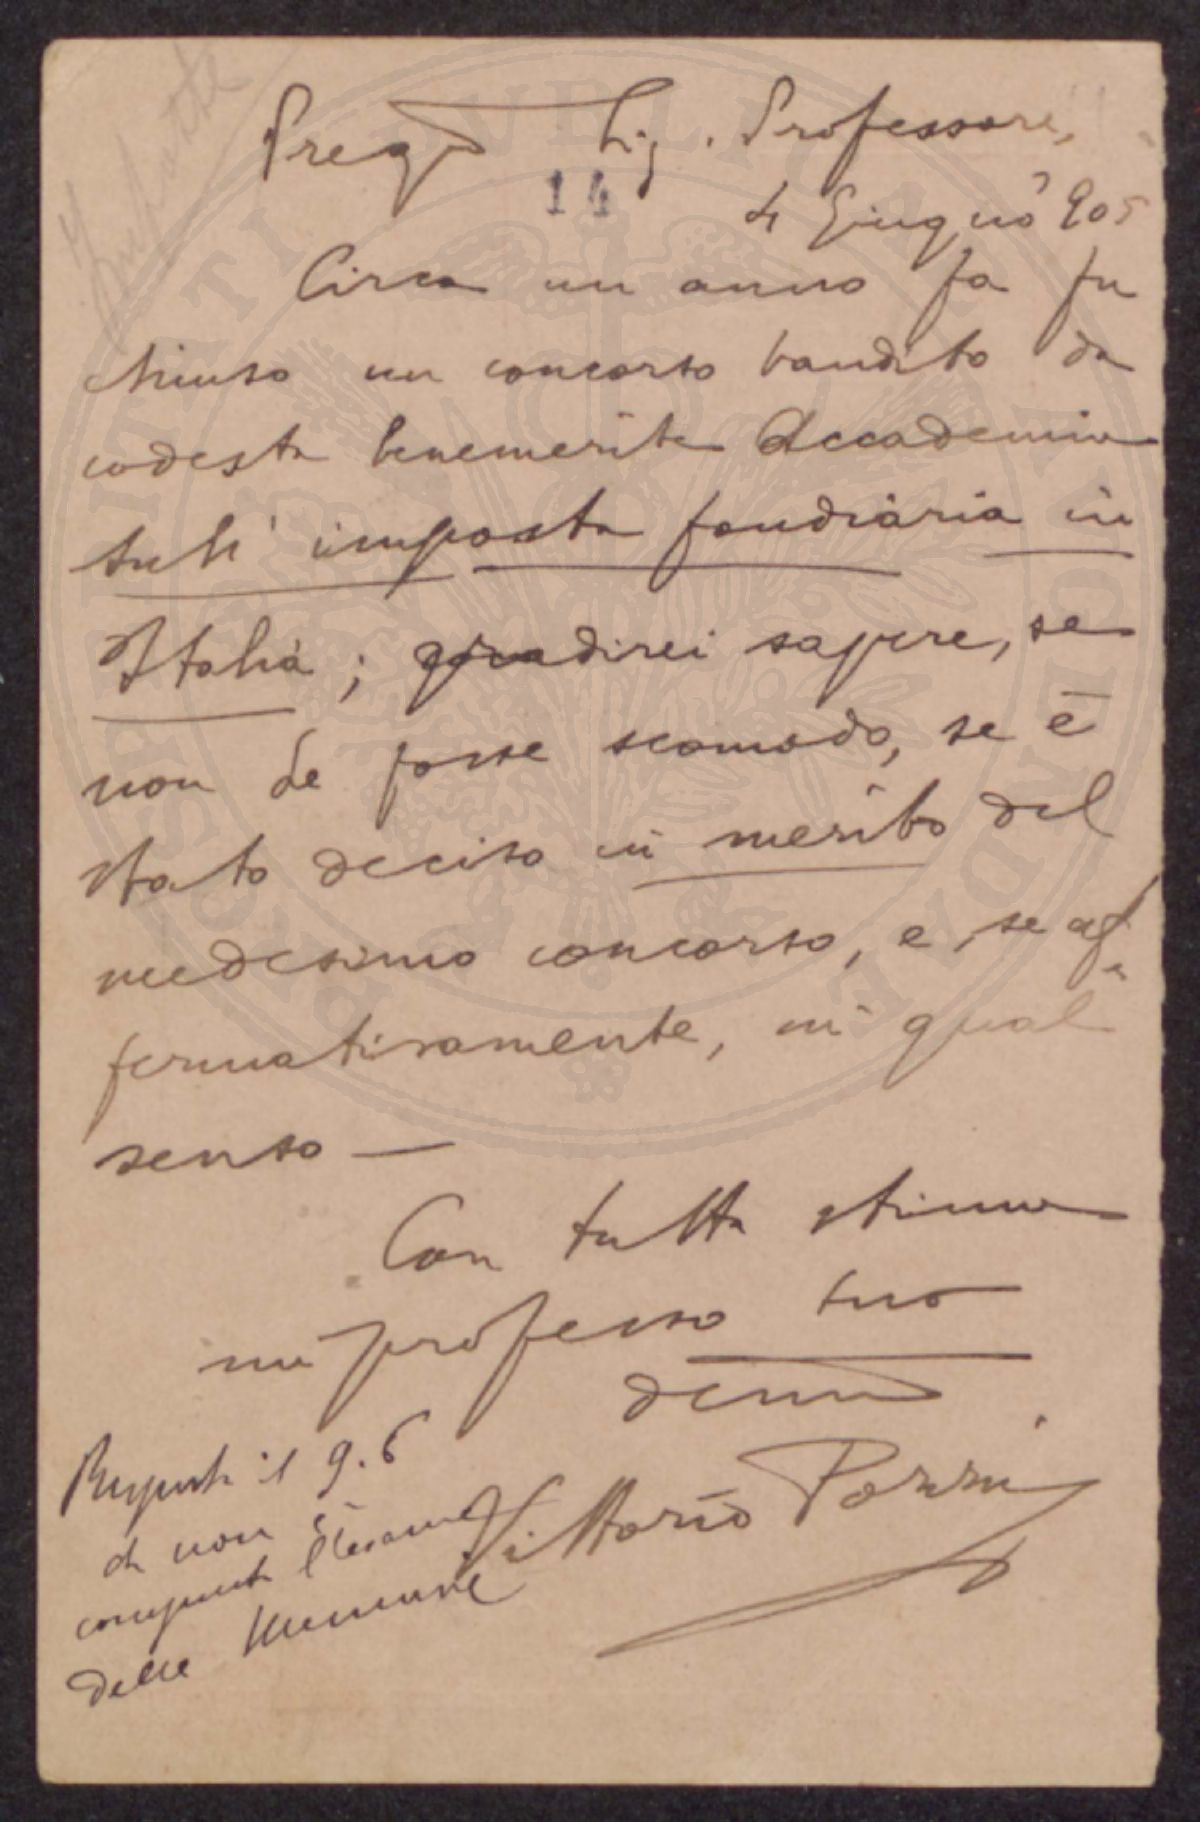 Imposte
Pregº Sig. Professore,
14
4 Giugno 905
Circa un anno fa fu
chiuso un concorso bandito da
codesta benemerita Accademia
sull' imposta fondiaria in
Italia; gradirei sapere, se
non Le fosse scomodo, se è
stato deciso in merito del
medesimo concorso, e, se af-
fermativamente, in qual
senso —
Con tutta stima
mi professo suo
demo
Vittorio Pozzi
Risposto il 9.6
che non è
compiuta l'esame
delle Memorie
PROSPERITATI PUBLICAE AUGENDAE